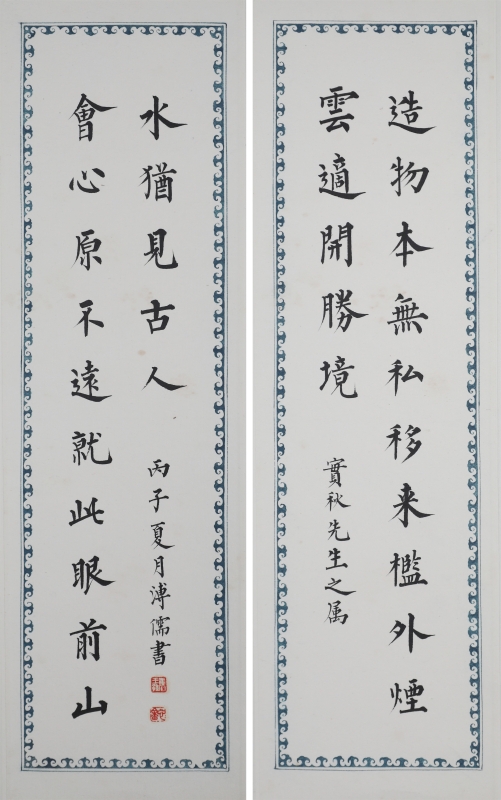 造物本無私移来檻外煙
雲適開勝境
實秋先生之属
會心原不遠就此眼前山
水猶見古人
丙子夏月溥儒書